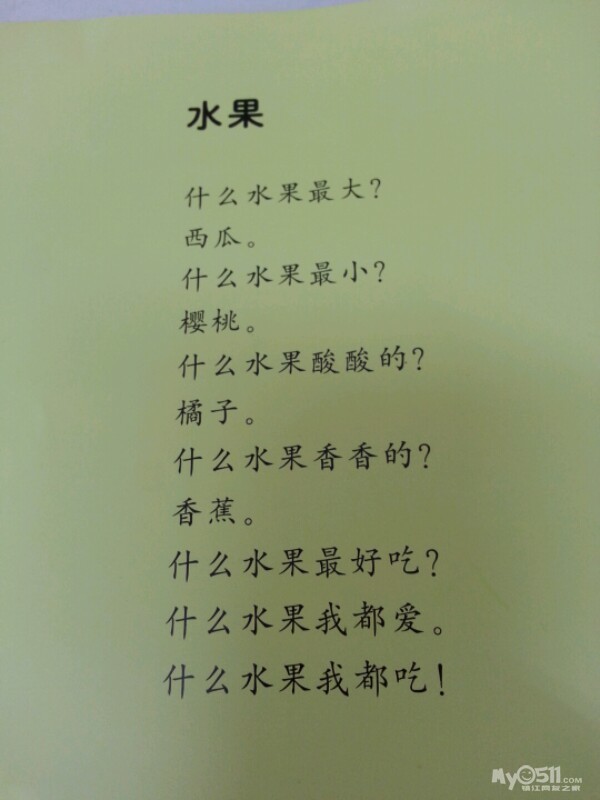 水果
什么水果最大？
西瓜。
什么水果最小？
樱桃。
什么水果酸酸的？
橘子。
什么水果香香的？
香蕉。
什么水果最好吃？
什么水果我都爱。
什么水果我都吃！
My0511.COM
镇江网友之家